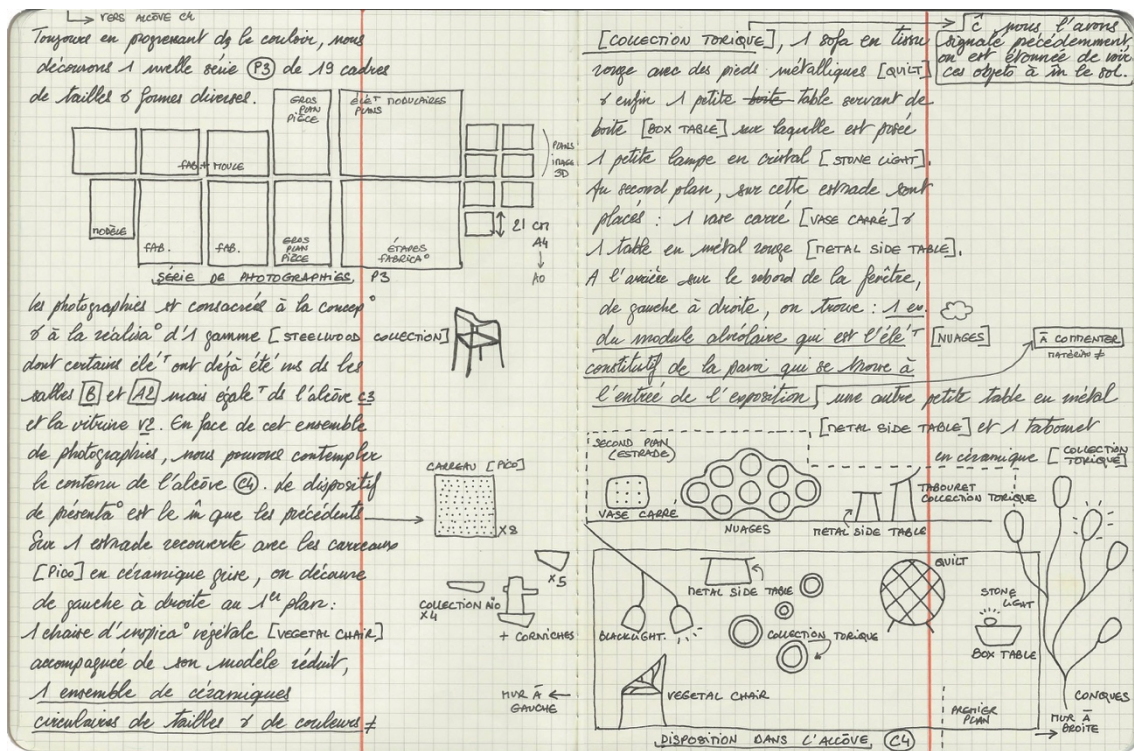 ↳ VERS ALCÔVE C4
Toujours en progressant ds le couloir, nous
découvrons 1 nvelle série (P3) de 19 cadres
de tailles & formes diverses.
GROS
PLAN
PIÈCE
ÉLÉᵀ MODULAIRES
PLANS
FAB. + MOULE
PLANS
IMAGE
3D
MODÈLE
FAB.
FAB.
GROS
PLAN
PIÈCE
ÉTAPES
FABRICA°
21 cm
A4
↓
A0
SÉRIE DE PHOTOGRAPHIES P3
Les photographies st consacrées à la concep°
& à la réalisa° d'1 gamme [STEELWOOD COLLECTION]
dont certains éléᵀ ont déjà été vus ds les
salles [B] et [A2] mais égaleᵀ ds l'alcôve C3
et la vitrine V2. En face de cet ensemble
de photographies, nous pouvons contempler
le contenu de l'alcôve (C4). Le dispositif
de présenta° est le m̂ que les précédents
Sur 1 estrade recouverte avec les carreaux
[PICO] en céramique grise, on découvre
de gauche à droite au 1er plan :
1 chaise d'inspira° végétale [VEGETAL CHAIR]
accompagnée de son modèle réduit,
1 ensemble de céramiques
circulaires de tailles & de couleurs ≠
CARREAU [PICO]
x8
x5
COLLECTION AIO
x4
+ CORNICHES
MUR À ←
GAUCHE
[COLLECTION TORIQUE], 1 sofa en tissu
rouge avec des pieds métalliques [QUILT]
& enfin 1 petite boite table servant de
boîte [BOX TABLE] sur laquelle est posée
1 petite lampe en cristal [STONE LIGHT].
Au second plan, sur cette estrade sont
placés : 1 vase carré [VASE CARRÉ] &
1 table en métal rouge [METAL SIDE TABLE].
A l'arrière sur le rebord de la fenêtre,
de gauche à droite, on trouve : 1 en.
du module alvéolaire qui est l'éléᵀ [NUAGES]
constitutif de la paroi qui se trouve à
l'entrée de l'exposition, une autre petite table en métal
[METAL SIDE TABLE] et 1 tabouret
en céramique [COLLECTION
TORIQUE]
ĉ nous l'avons
signalé précédemment
on est étonnée de voir
ces objets à m̂ le sol.
À COMMENTER
MATÉRIAU ≠
SECOND PLAN
(ESTRADE)
VASE CARRE
NUAGES
METAL SIDE TABLE
TABOURET
COLLECTION TORIQUE
METAL SIDE TABLE
QUILT
STONE
LIGHT
BLACKLIGHT.
COLLECTION TORIQUE
BOX TABLE
VEGETAL CHAIR
CONQUES
PREMIER
PLAN
→ MUR À
DROITE
DISPOSITION DANS L'ALCÔVE (C4)